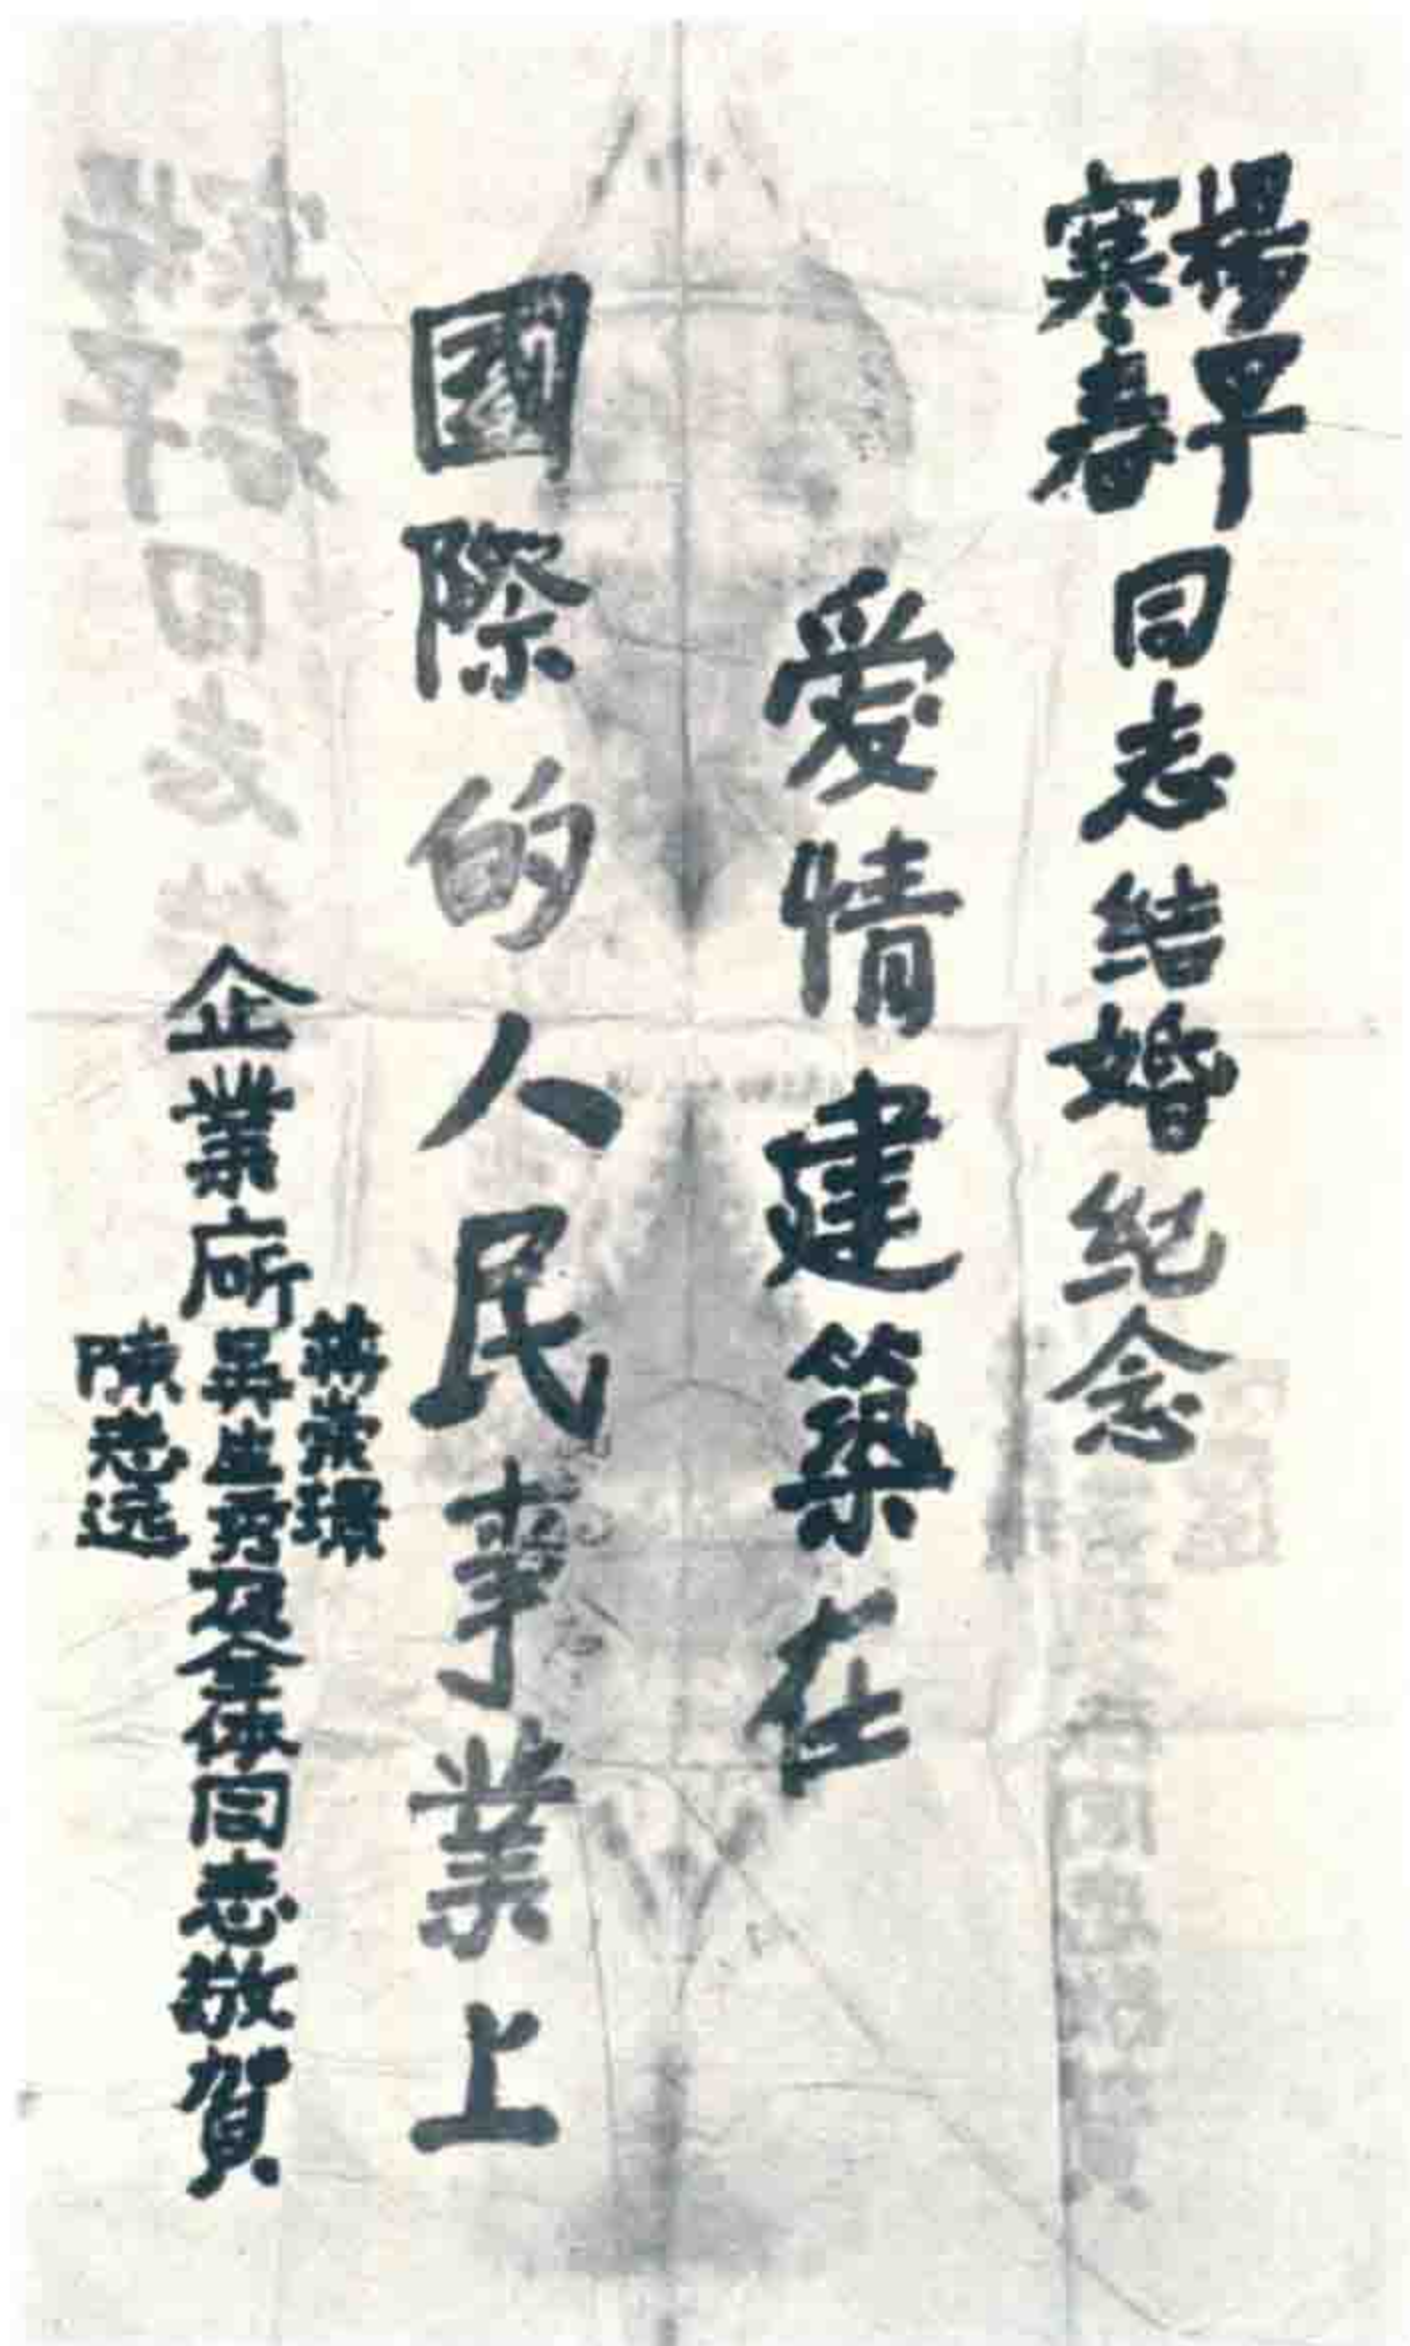 楊早
寒春
同志结婚纪念
爱情建築在
國際的人民事業上
企業所
蒋崇璟
吴生秀
陳志远
及全体同志敬賀